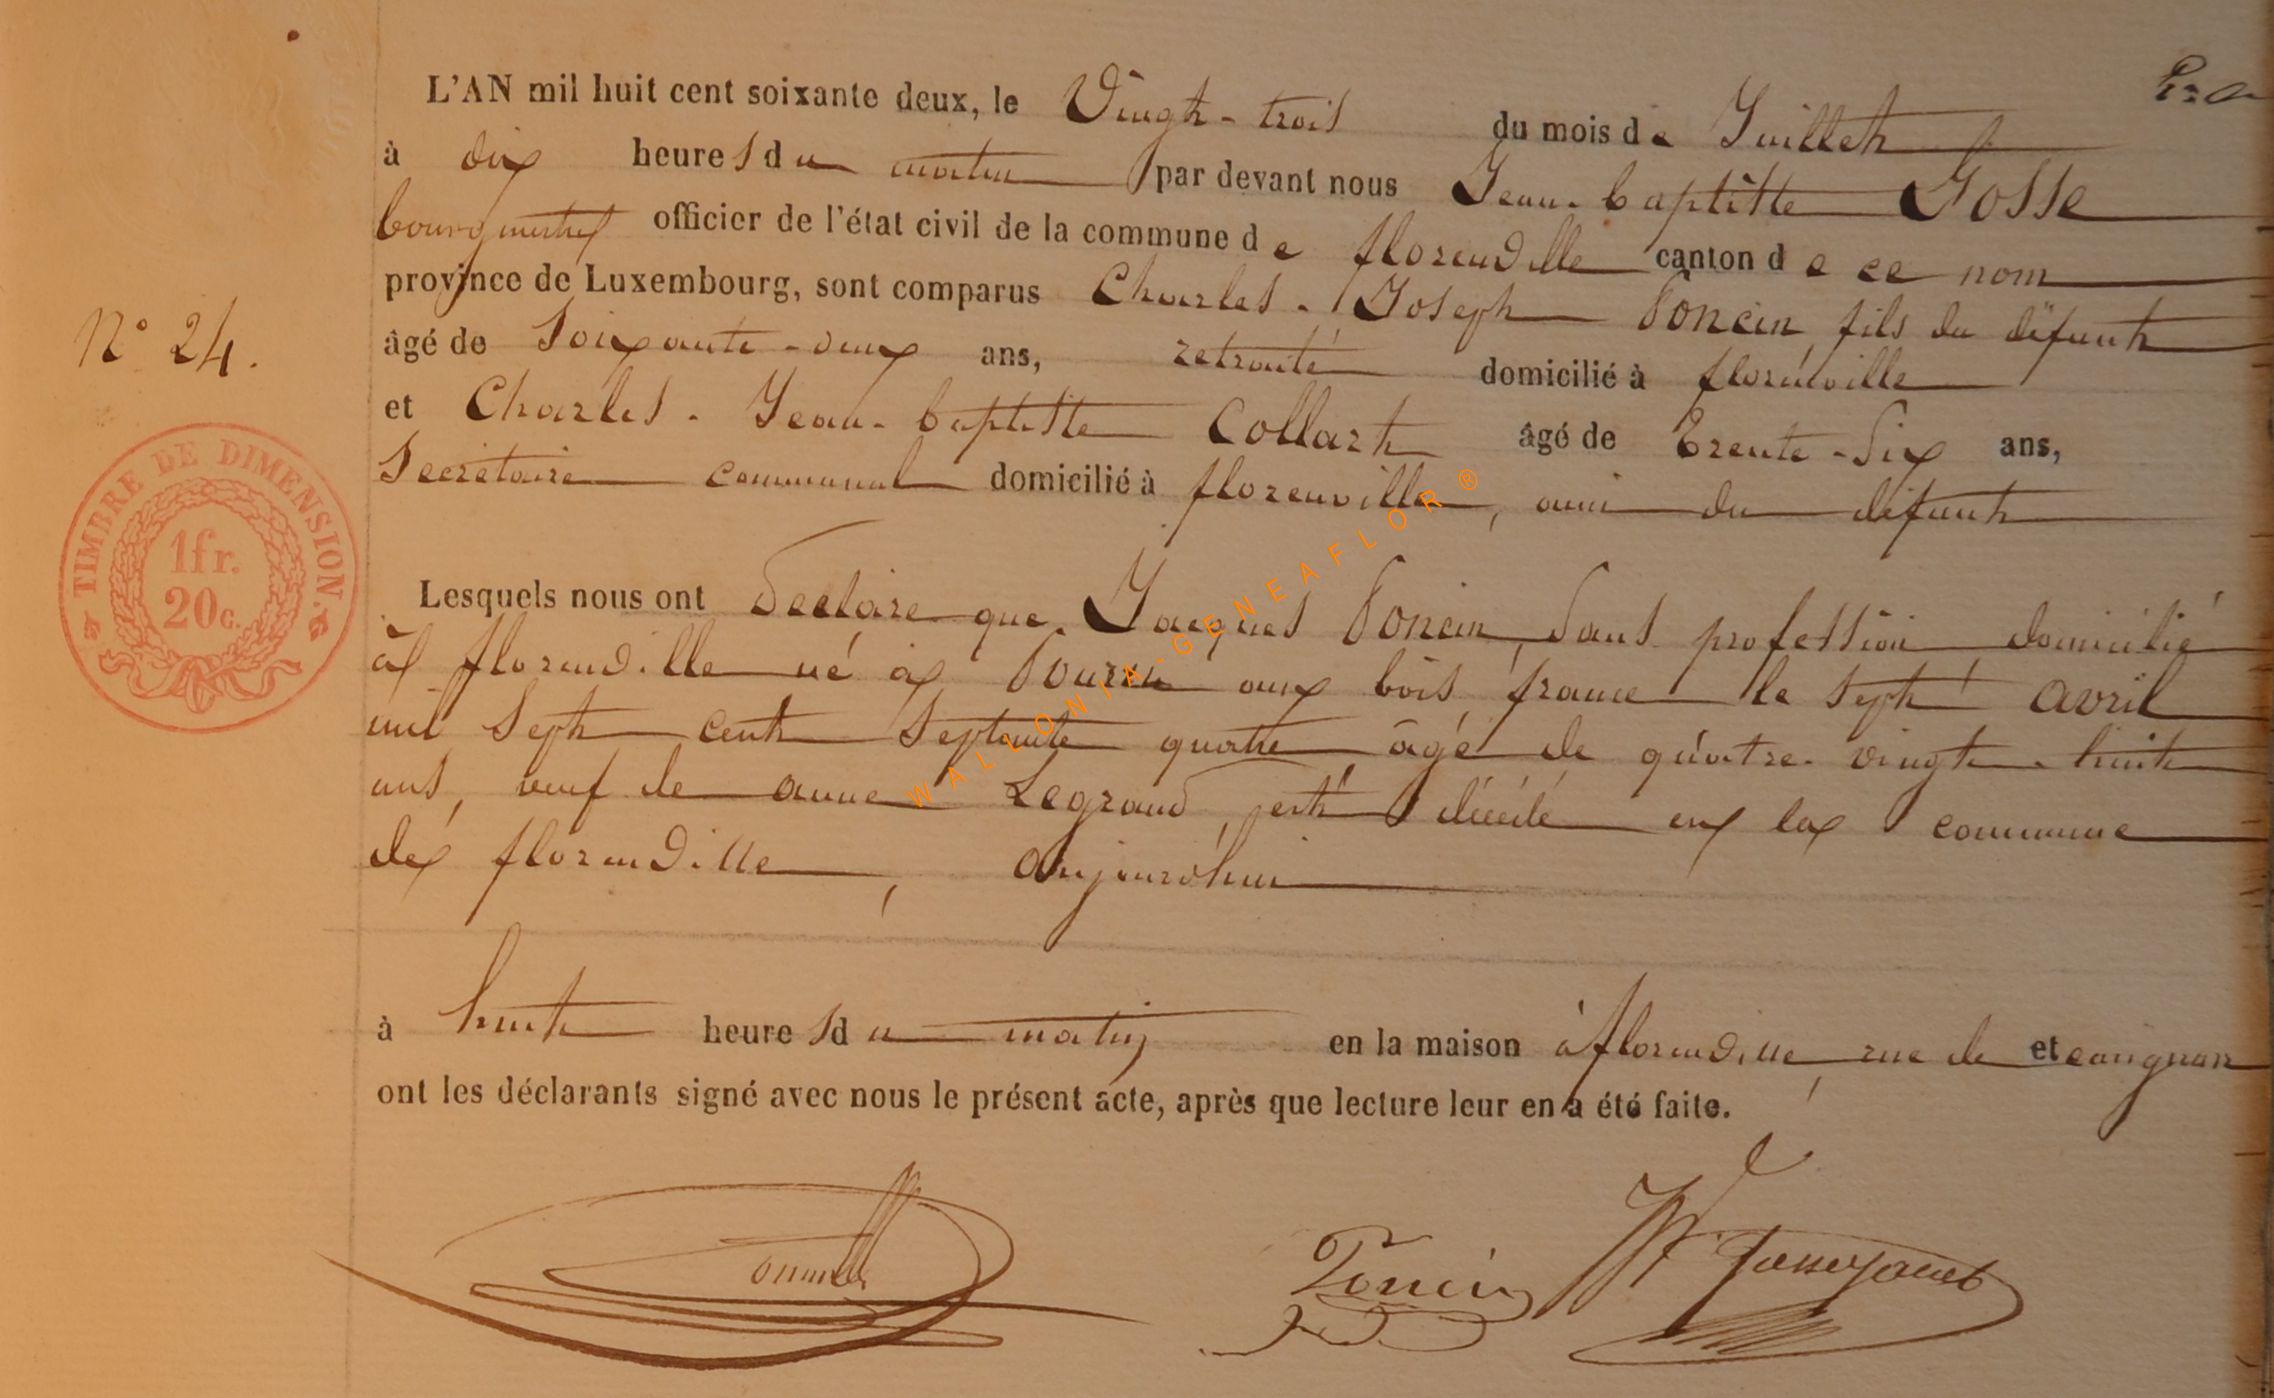 L'AN mil huit cent soixante deux, le Vingt-trois du mois de Juillet
à dix heures du matin par devant nous Jean-baptiste Gosse
bourgmestre officier de l'état civil de la commune de florenville canton de ce nom
province de Luxembourg, sont comparus Charles-Joseph Poncin, fils du défunt
N° 24.
âgé de Soixante-deux ans, retraité domicilié à florenville
et Charles-Jean-baptiste Collart âgé de Trente-Six ans,
Secrétaire communal domicilié à florenville, ami du défunt
TIMBRE DE DIMENSION.
1fr.
20c.
WALLONIA-GENEAFLOR®
Lesquels nous ont Déclaré que Jacques Poncin, Sans profession domicilié
à florenville né à Pourru aux bois, france le Sept avril
mil Sept cent Septante quatre, âgé de quatre-vingt-huit
ans, veuf de anne Legrand, est décédé en la commune
de florenville, aujourd'hui
à huit heures du matin en la maison à florenville, rue de carignan et
ont les déclarants signé avec nous le présent acte, après que lecture leur en a été faite.
Poncin